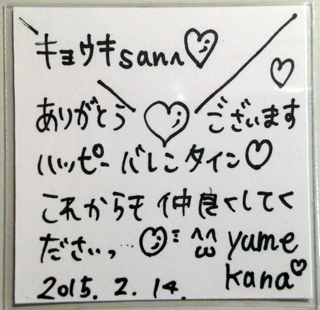 キョウキsanへ♡
ありがとう♡ございます
ハッピーバレンタイン♡
これからも仲良くしてく
ださいっ…
yume
2015.2.14. kana♡